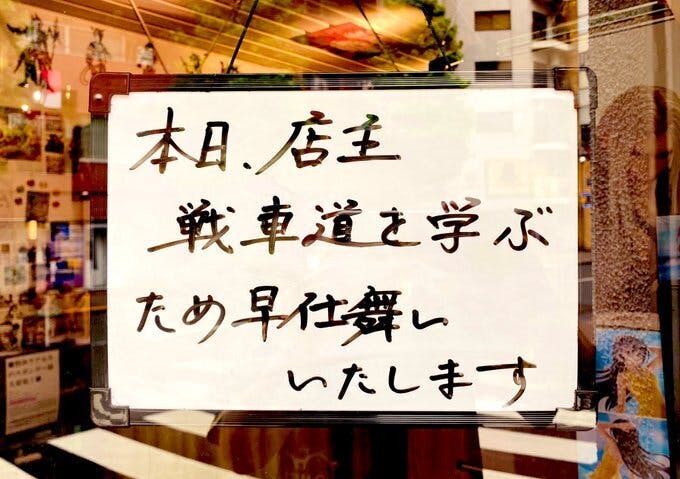 本日、店主
戦車道を学ぶ
ため早仕舞い
いたします